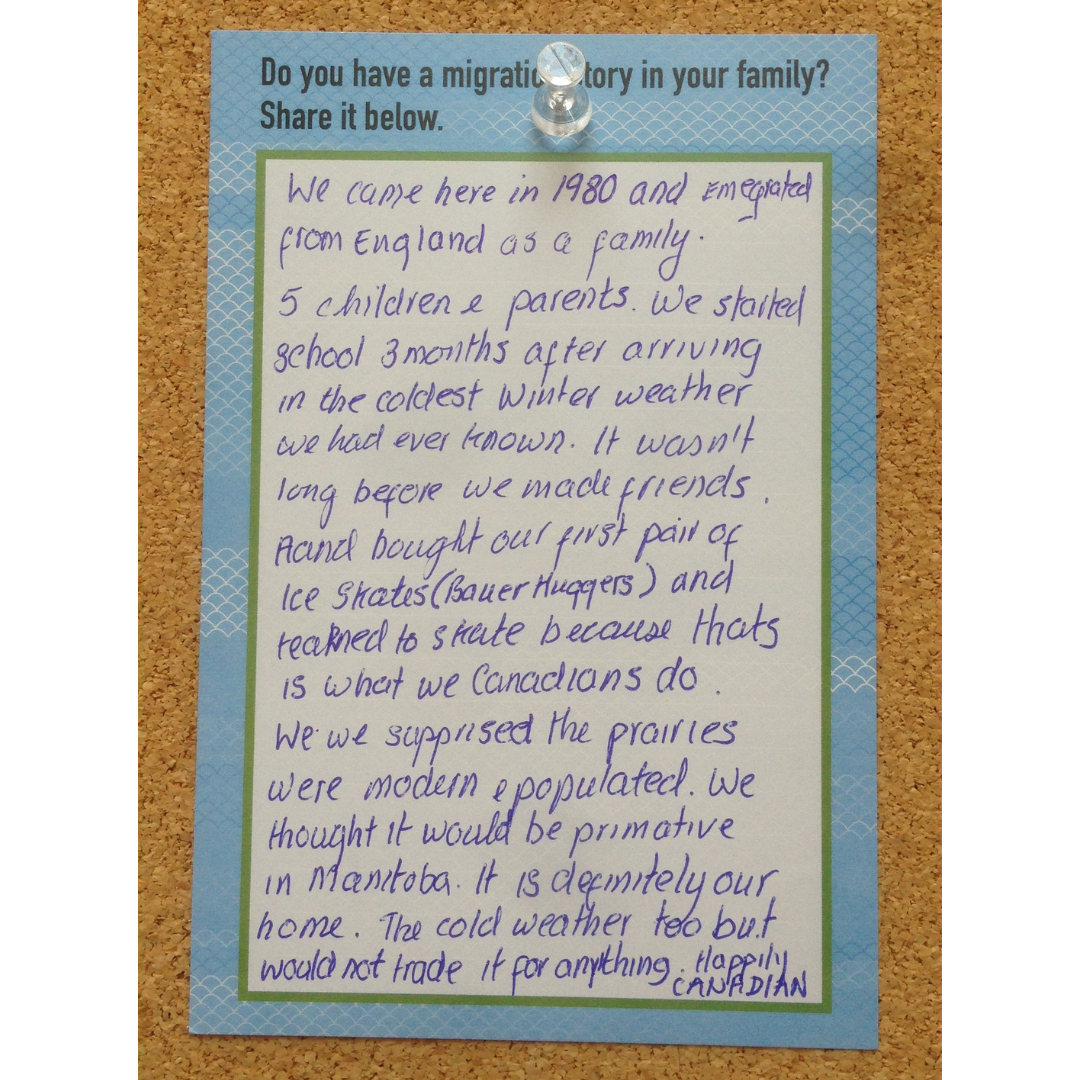 Do you have a migratio tory in your family?
Share it below.
We came here in 1980 and Emegrated
from England as a family.
5 children & parents. We started
school 3 months after arriving
in the coldest Winter weather
we had ever known. It wasn't
long before we made friends.
Aand bought our first pair of
Ice Skates (Bauer Huggers) and
learned to skate because thats
is what we Canadians do.
We we supprised the prairies
were modern & populated. We
thought it would be primative
in Manitoba. It is definitely our
home. The cold weather too but
would not trade it for anything. Happily
CANADIAN